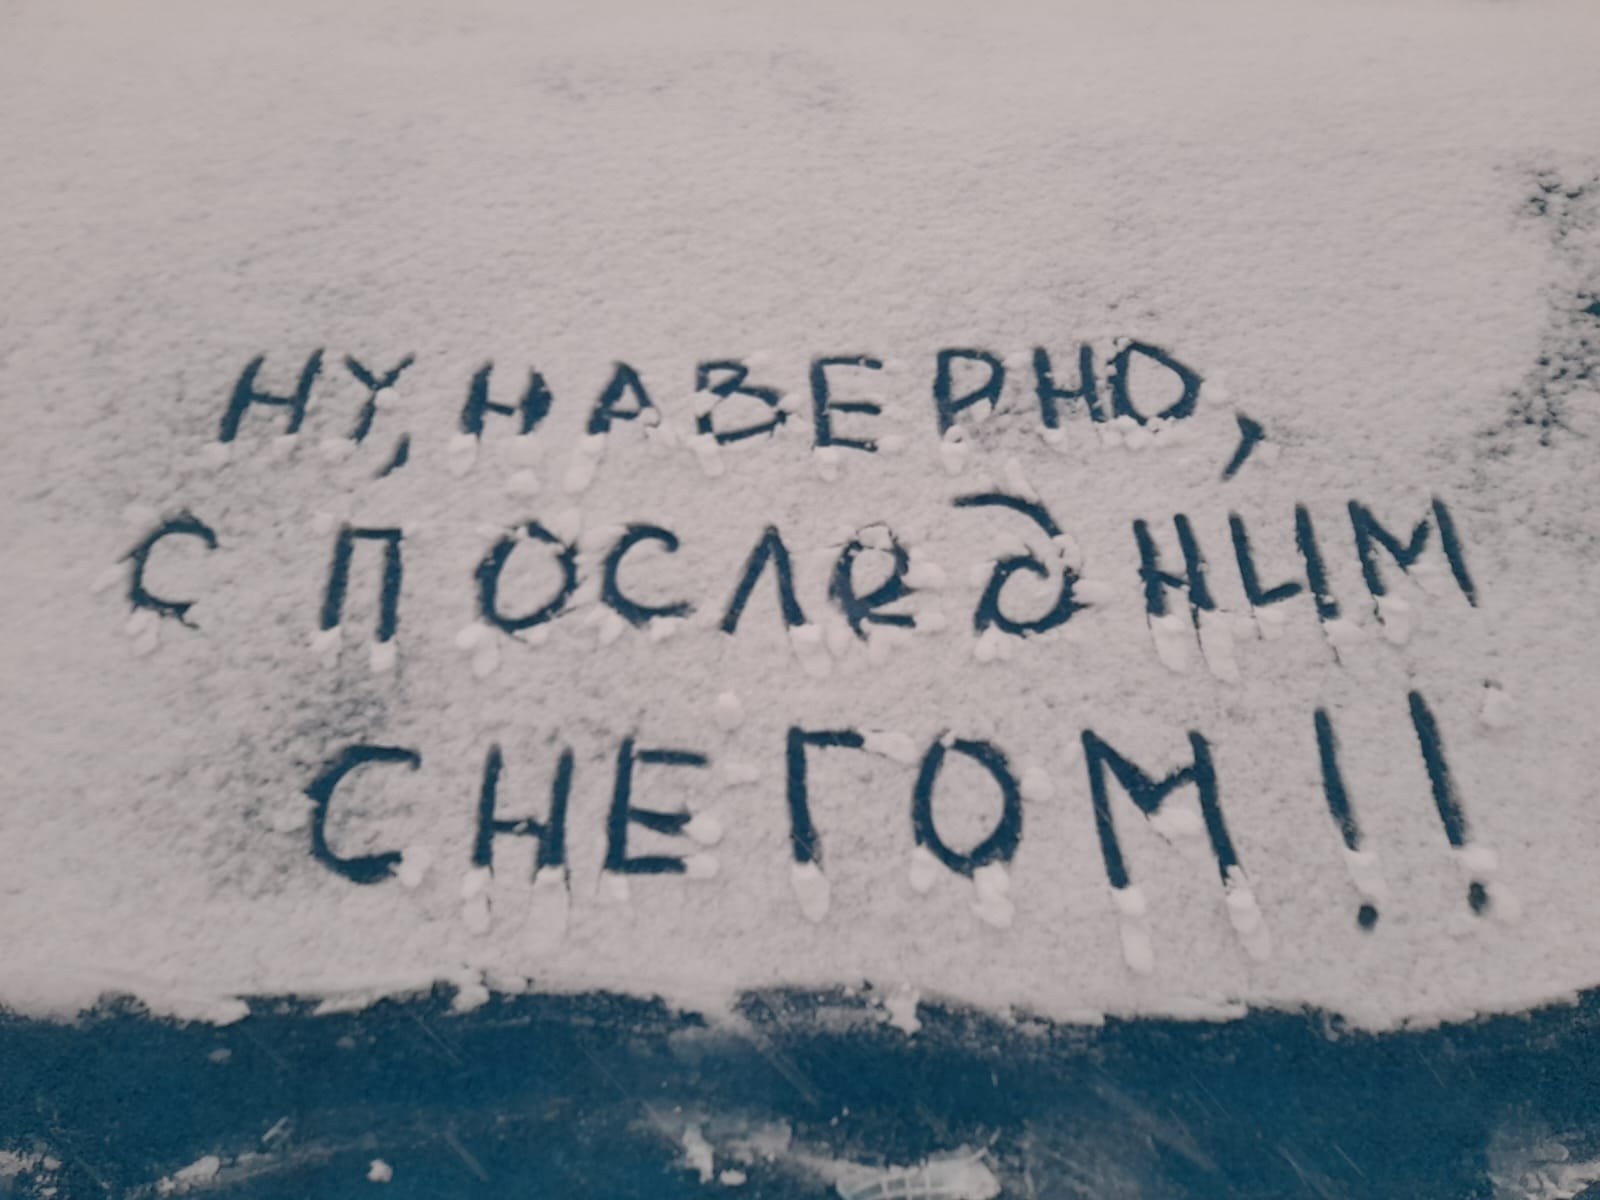 НУ, НАВЕРНО,
С ПОСЛЕДНИМ
СНЕГОМ!!